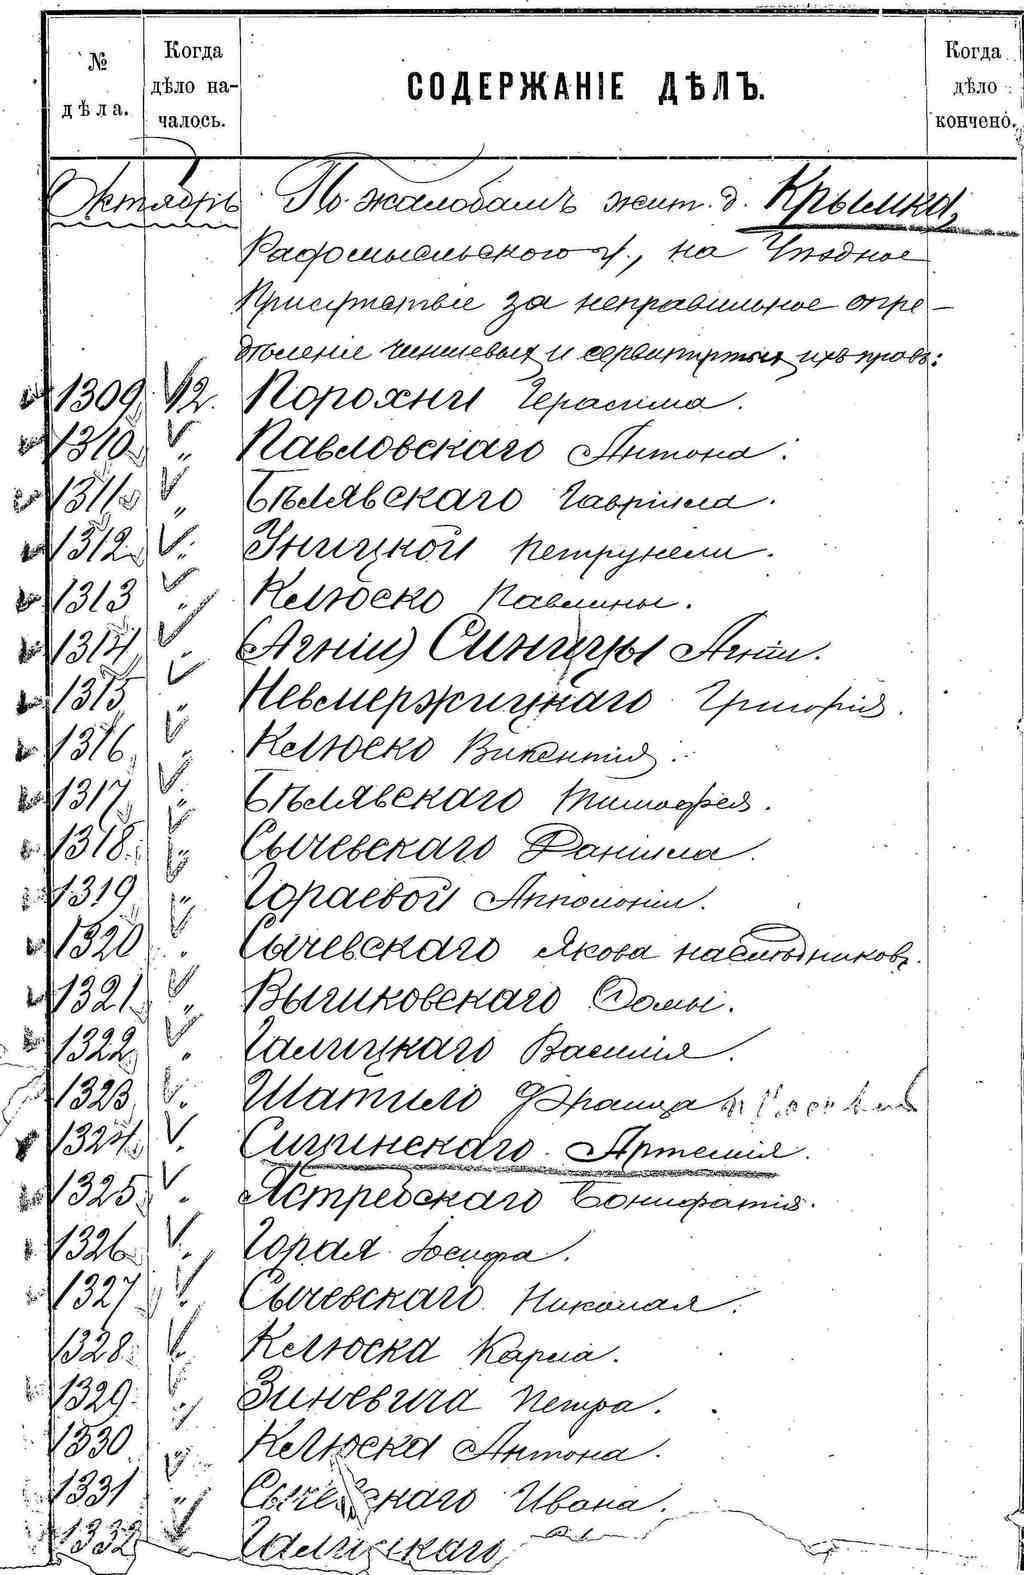 № дѣла.
Когда дѣло началось.
СОДЕРЖАНІЕ ДѢЛЪ.
Когда дѣло кончено.
Октябрь По жалобамъ жит. д. Крымка,
Радомысльского у., на Уѣздное
Присутствіе за неправильное опре-
дѣленіе чиншевых и сервитутных ихъ правъ:
1309 12. Порохни Герасима.
1310 " Павловскаго Антона.
1311 " Бѣлявскаго Гавріила.
1312 " Уницкой Петрунели.
1313 " Клюско Павлины.
1314 " (Агніи) Синицы Агніи.
1315 " Невмержицкаго Григорія.
1316 " Клюско Викентія.
1317 " Бѣлявскаго Тимофея.
1318 " Сычевскаго Даніила.
1319 " Гораевой Апполоніи.
1320 " Сычевскаго Якова наслѣдниковъ.
1321 " Выгиковскаго Фомы.
1322 " Галицкаго Василія.
1323 " Шатило Франца
1324 " Сицинскаго Артемія.
1325 " Ястребскаго Бонифатія.
1326 " Горая Іосифа.
1327 " Сычевскаго Николая.
1328 " Клюска Карла.
1329 " Зиневича Петра.
1330 " Клюска Антона.
1331 " Сычевскаго Ивана.
1332 Галицкаго